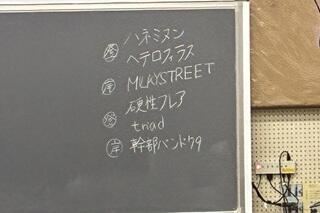 ハネミヌン
ヘテロフィラス
MILKYSTREET
硬性フレア
triad
岸 幹部バンド79